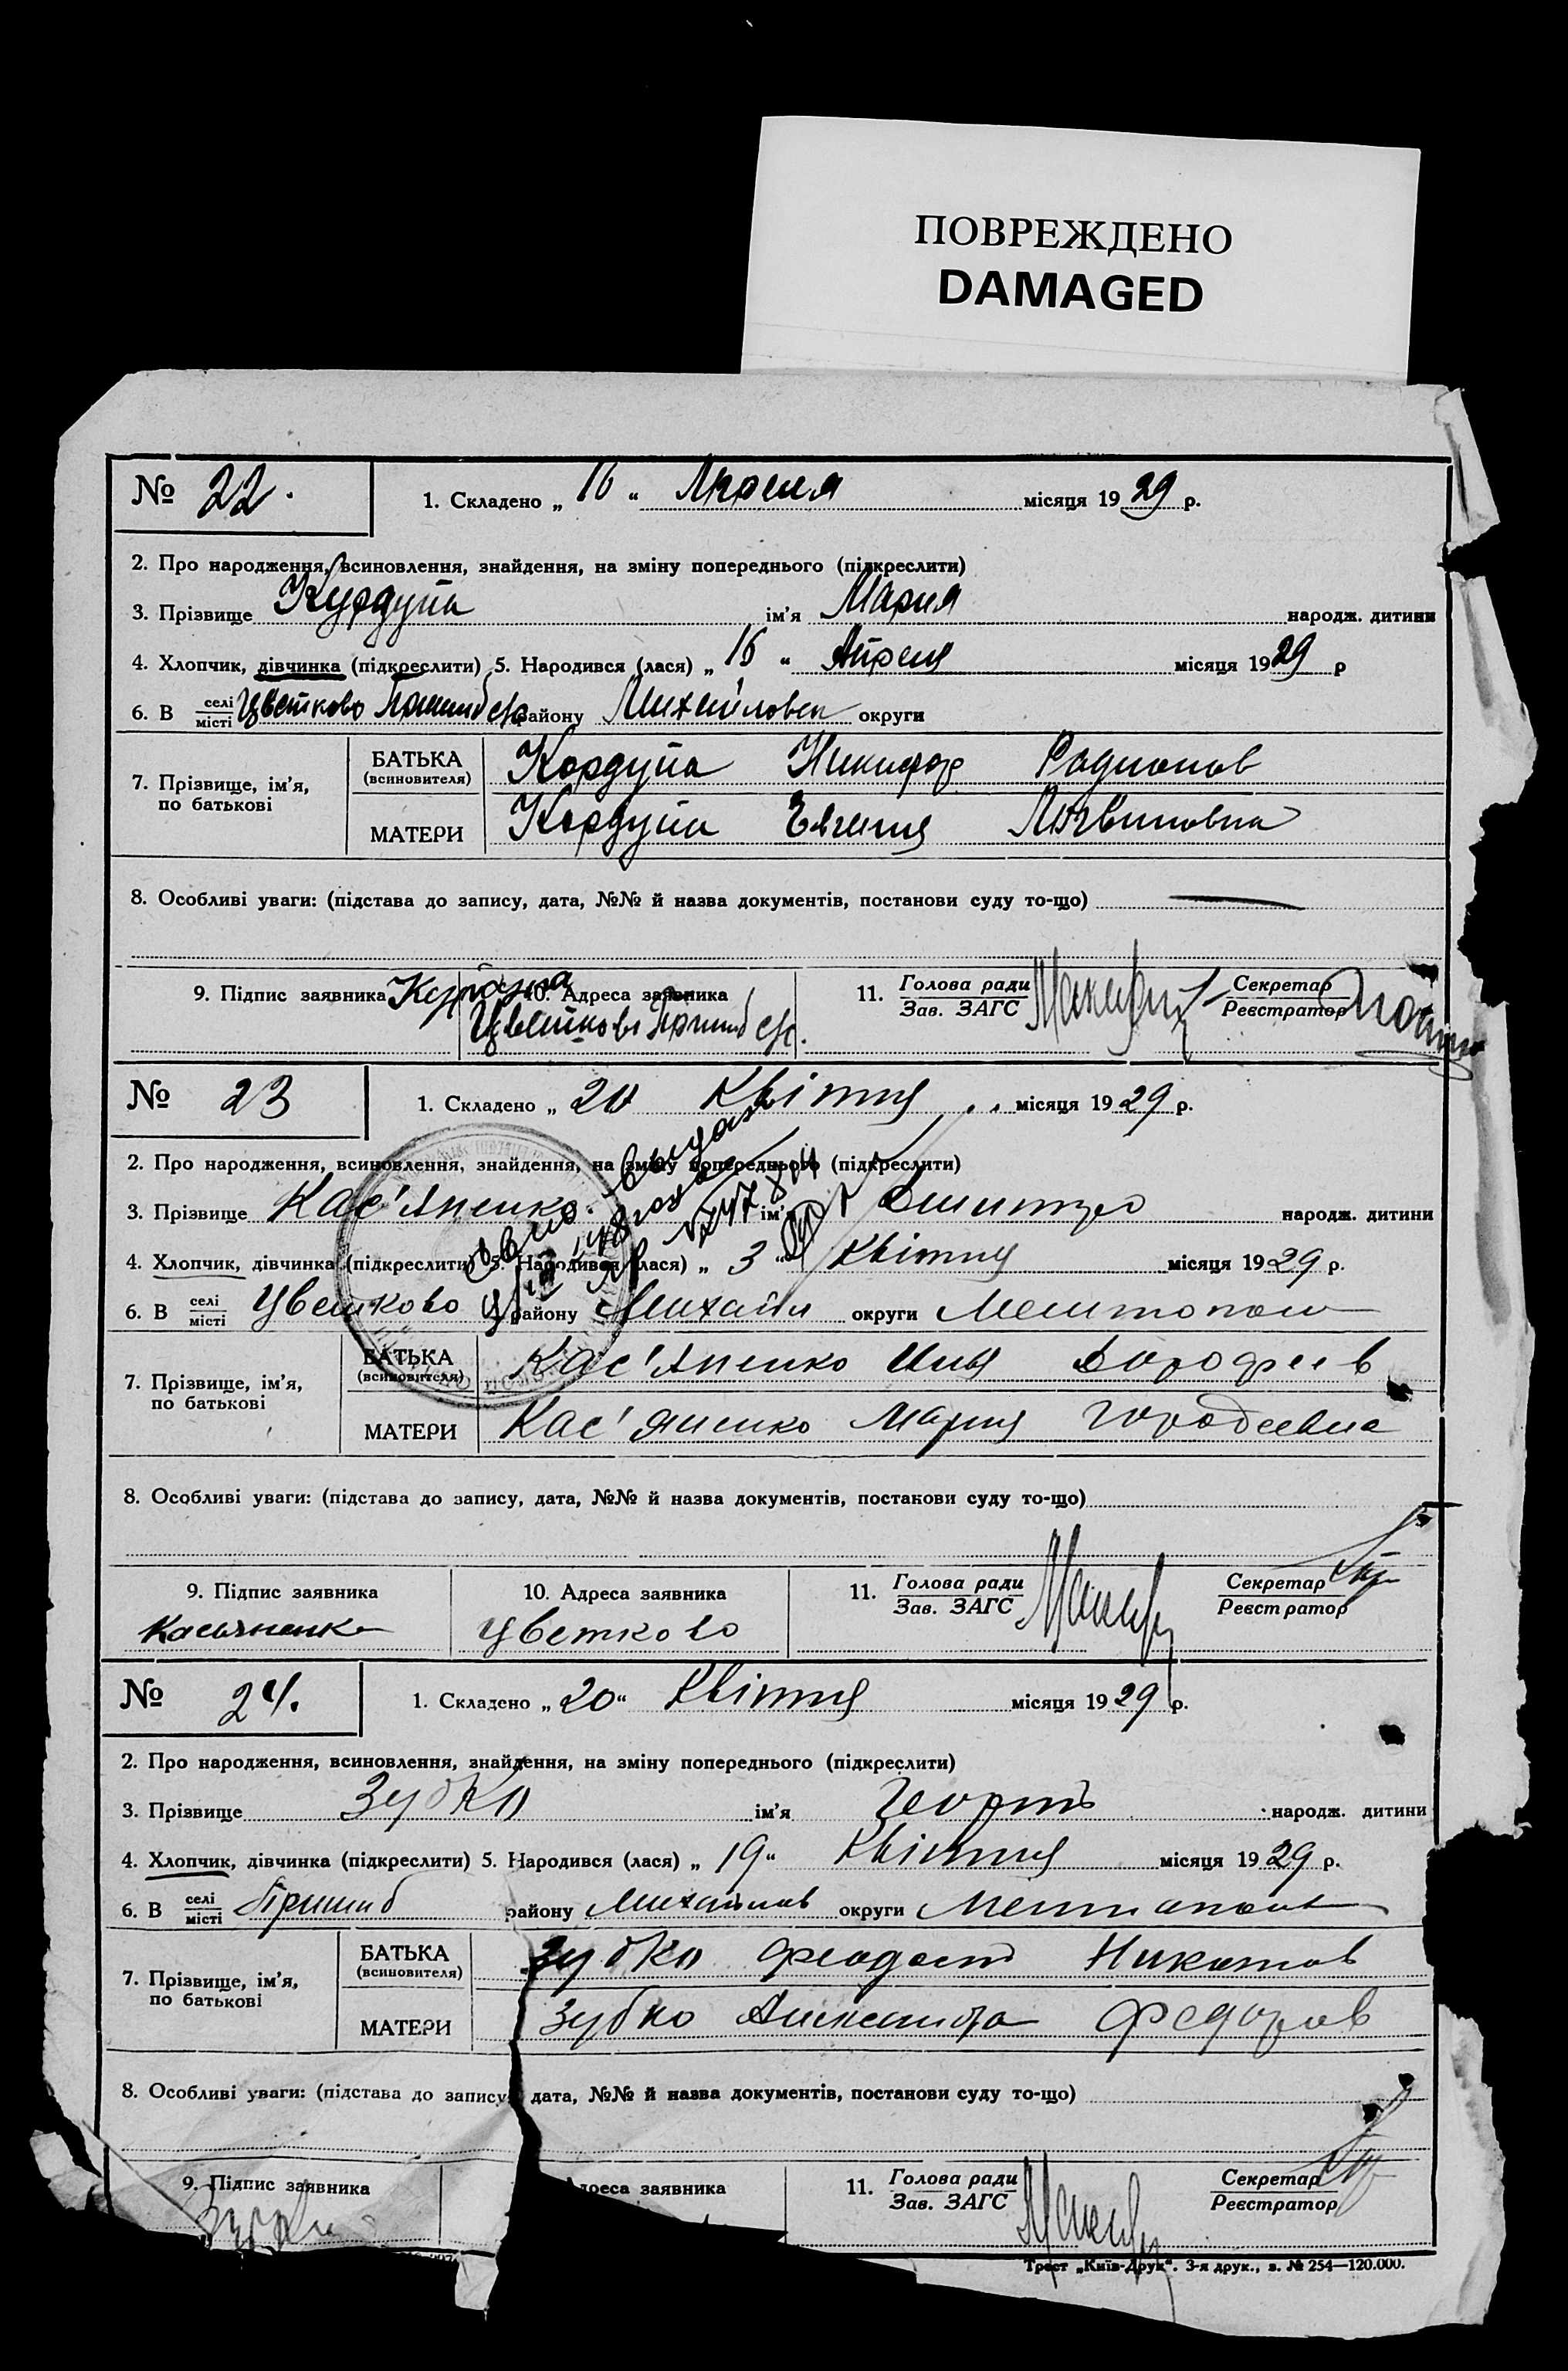 ПОВРЕЖДЕНО
DAMAGED
№ 22. 1. Складено „ 16 “ Апреля місяця 1929 р.
2. Про народження, всиновлення, знайдення, на зміну попереднього (підкреслити)
3. Прізвище Курдупа ім’я Мария народж. дитини
4. Хлопчик, дівчинка (підкреслити) 5. Народився (лася) „ 15 “ Апреля місяця 1929 р
6. В селі місті Цветково Пришиб с/р району Михайловск округи
7. Прізвище, ім’я, по батькові
БАТЬКА (всиновителя) Кордупа Никифор Родионов
МАТЕРИ Кордупа Евгения Логвиновна
8. Особливі уваги: (підстава до запису, дата, №№ й назва документів, постанови суду то-що)
9. Підпис заявника 10. Адреса заявника 11. Голова ради Зав. ЗАГС Секретар Реєстратор
Цветково Пришиб с/р.
№ 23 1. Складено „ 20 Квітня місяця 1929 р.
2. Про народження, всиновлення, знайдення, на зміну попереднього (підкреслити)
3. Прізвище Кас'яненко ім’я Дмитро народж. дитини
4. Хлопчик, дівчинка (підкреслити) 5. Народився (лася) „ 3 “ Квітня місяця 1929 р.
6. В селі місті Цветково району Михайл округи Мелитополь
7. Прізвище, ім’я, по батькові
БАТЬКА (всиновителя) Кас'яненко Илья Дорофеев
МАТЕРИ Кас'яненко Мария Гордеевна
8. Особливі уваги: (підстава до запису, дата, №№ й назва документів, постанови суду то-що)
9. Підпис заявника 10. Адреса заявника 11. Голова ради Зав. ЗАГС Секретар Реєстратор
Касьяненко Цветково
№ 24. 1. Складено „ 20 “ Квітня місяця 1929 р.
2. Про народження, всиновлення, знайдення, на зміну попереднього (підкреслити)
3. Прізвище Зубко ім’я Георгій народж. дитини
4. Хлопчик, дівчинка (підкреслити) 5. Народився (лася) „ 19 “ Квітня місяця 1929 р.
6. В селі місті Пришиб району Михайлов округи Мелитополь
7. Прізвище, ім’я, по батькові
БАТЬКА (всиновителя) Зубко Феодосий
МАТЕРИ Зубко Александра Федоров
8. Особливі уваги: (підстава до запису, дата, №№ й назва документів, постанови суду то-що)
9. Підпис заявника дреса заявника 11. Голова ради Зав. ЗАГС Секретар Реєстратор
Трест „Київ-Друк“. 3-я друк., з. № 254—120.000.